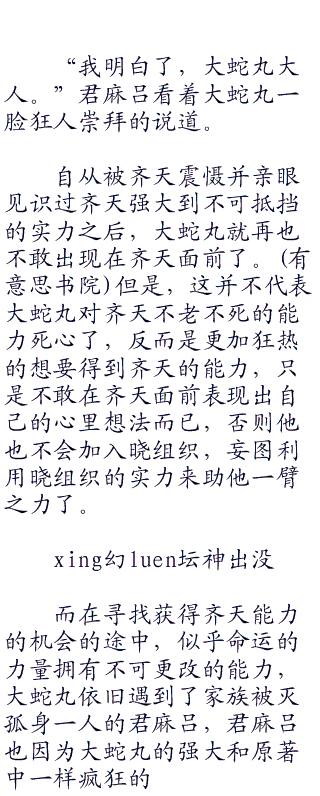 “我明白了，大蛇丸大
人。”君麻吕看着大蛇丸一
脸狂人崇拜的说道。
自从被齐天震慑并亲眼
见识过齐天强大到不可抵挡
的实力之后，大蛇丸就再也
不敢出现在齐天面前了。(有
意思书院)但是，这并不代表
大蛇丸对齐天不老不死的能
力死心了，反而是更加狂热
的想要得到齐天的能力，只
是不敢在齐天面前表现出自
己的心里想法而已，否则他
也不会加入晓组织，妄图利
用晓组织的实力来助他一臂
之力了。
xing幻luen坛神出没
而在寻找获得齐天能力
的机会的途中，似乎命运的
力量拥有不可更改的能力，
大蛇丸依旧遇到了家族被灭
孤身一人的君麻吕，君麻吕
也因为大蛇丸的强大和原著
中一样疯狂的